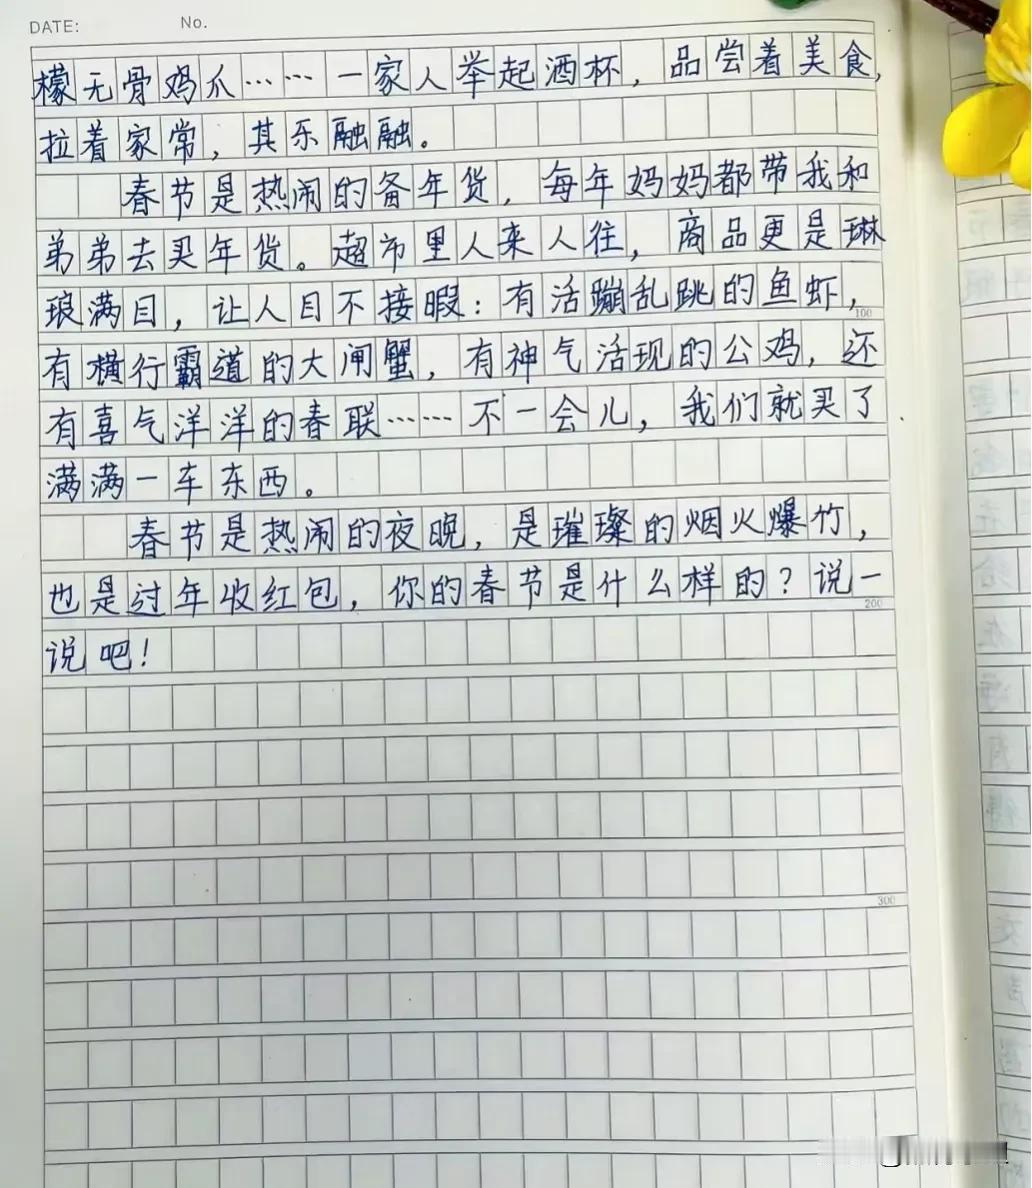 DATE: No.
檬无骨鸡爪……一家人举起酒杯，品尝着美食，
拉着家常，其乐融融。
春节是热闹的备年货，每年妈妈都带我和
弟弟去买年货。超市里人来人往，商品更是琳
琅满目，让人目不接暇：有活蹦乱跳的鱼虾，
100
有横行霸道的大闸蟹，有神气活现的公鸡，还
有喜气洋洋的春联……不一会儿，我们就买了
满满一车东西。
春节是热闹的夜晚，是璀璨的烟火爆竹，
也是过年收红包，你的春节是什么样的？说一
200
说吧！
300